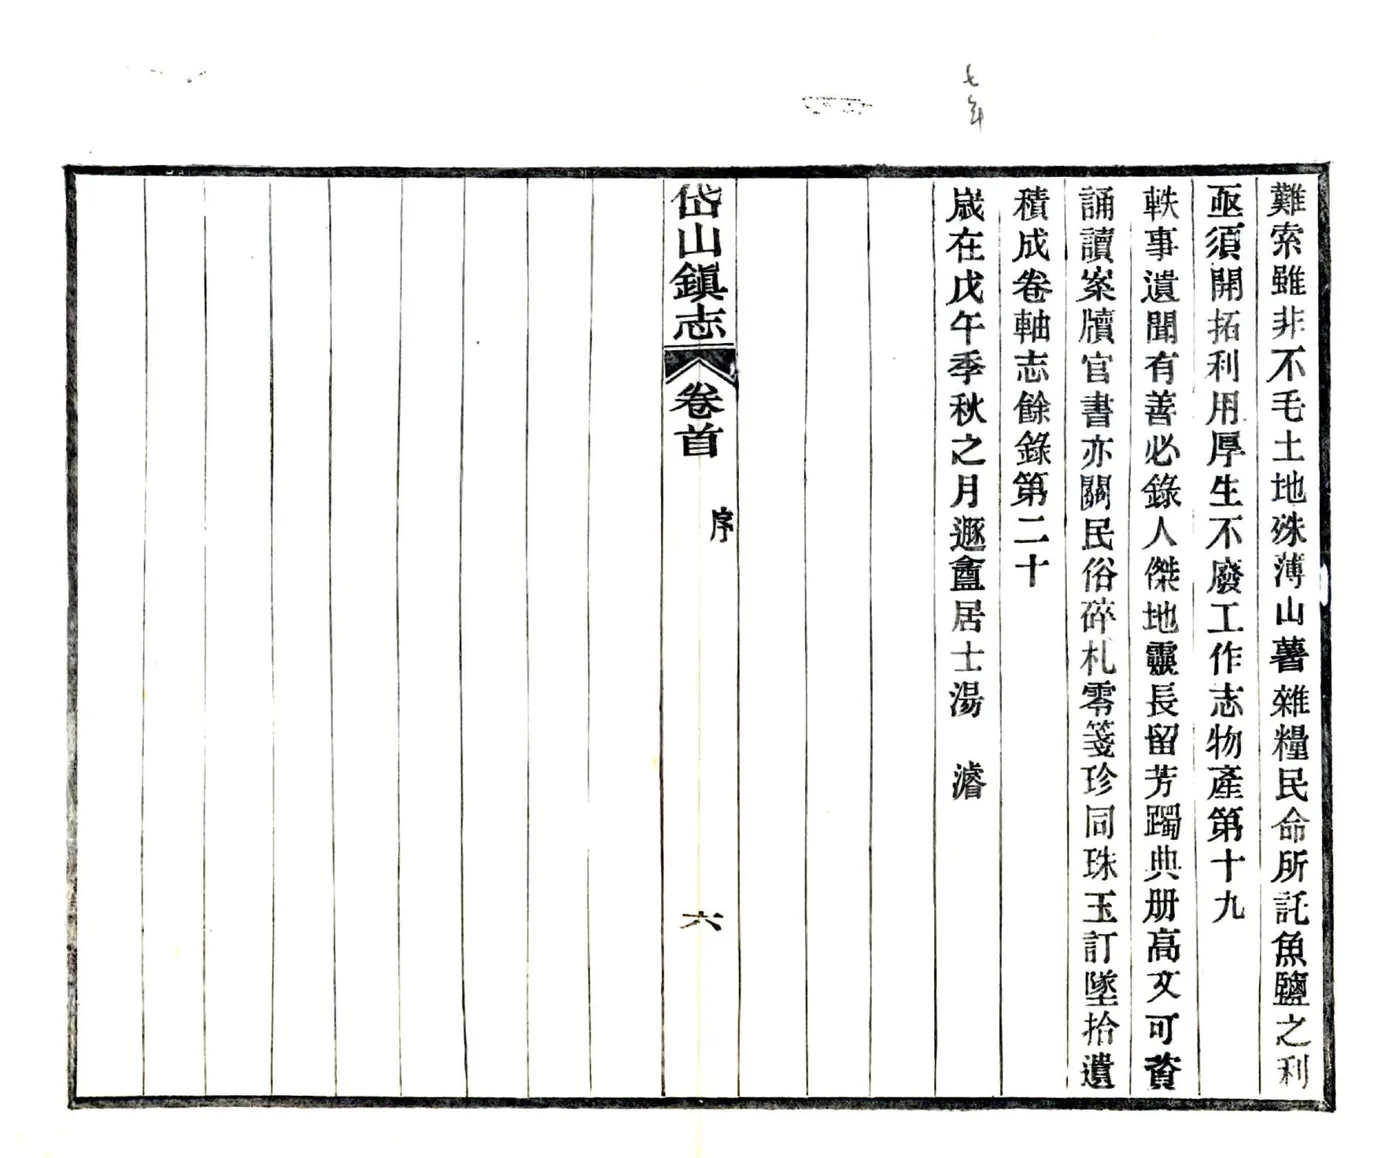 七年
難索雖非不毛土地殊薄山薯雜糧民命所託魚鹽之利
亟須開拓利用厚生不廢工作志物產第十九
軼事遺聞有善必錄人傑地靈長留芳躅典册高文可資
誦讀案牘官書亦關民俗碎札零箋珍同珠玉訂墜拾遺
積成卷軸志餘錄第二十
歲在戊午季秋之月遯盦居士湯　濬
岱山鎭志　卷首　序　六